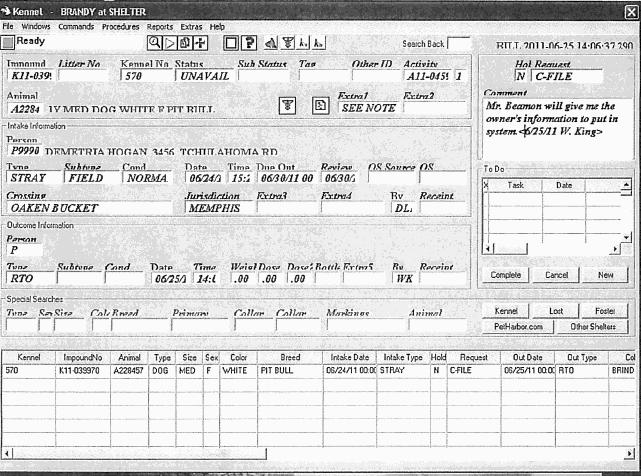 Kennel - BRANDY at SHELTER
File Windows Commands Procedures Reports Extras Help
Ready
Search Back
BILL 2011-06-25 14:06:37.290
Impound Litter No Kennel No Status Sub Status Tag Other ID Activity
K11-039 570 UNAVAIL A11-0455 1
Hol Request
N C-FILE
Animal Extra1 Extra2
A2284 1Y MED DOG WHITE F PIT BULL SEE NOTE
Comment
Mr. Beamon will give me the
owner's information to put in
system.<6/25/11 W. King>
Intake Information
Person
P9990 DEMETRIA HOGAN 3456 TCHULAHOMA RD
Type Subtype Cond Date Time Due Out Review OS Source OS
STRAY FIELD NORMA 06/24/1 15:2 06/30/11 00 06/30/
To Do
X Task Date
Crossing Jurisdiction Extra3 Extra4 By Receipt
OAKEN BUCKET MEMPHIS DL
Outcome Information
Person
P
Type Subtype Cond Date Time Weigl Dose Dose2 Bottle Extra5 By Receipt
RTO 06/25/1 14:0 .00 .00 .00 WK
Complete Cancel New
Special Searches
Type Sex Size Colo Breed Primary Collar Collar Markings Animal
Kennel Lost Foster
PetHarbor.com Other Shelters
Kennel ImpoundNo Animal Type Size Sex Color Breed Intake Date Intake Type Hold Request Out Date Out Type Col
570 K11-039970 A228457 DOG MED F WHITE PIT BULL 06/24/11 00:00 STRAY N C-FILE 06/25/11 00:00 RTO BRIND